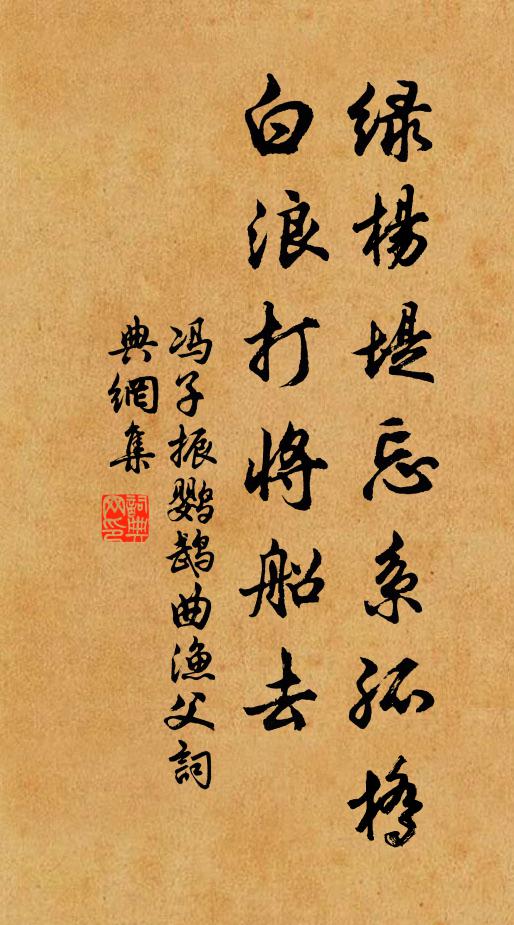 绿杨堤忘系孤桥
白浪打将船去
冯子振鹦鹉曲渔父詞
典網集
詞典網印